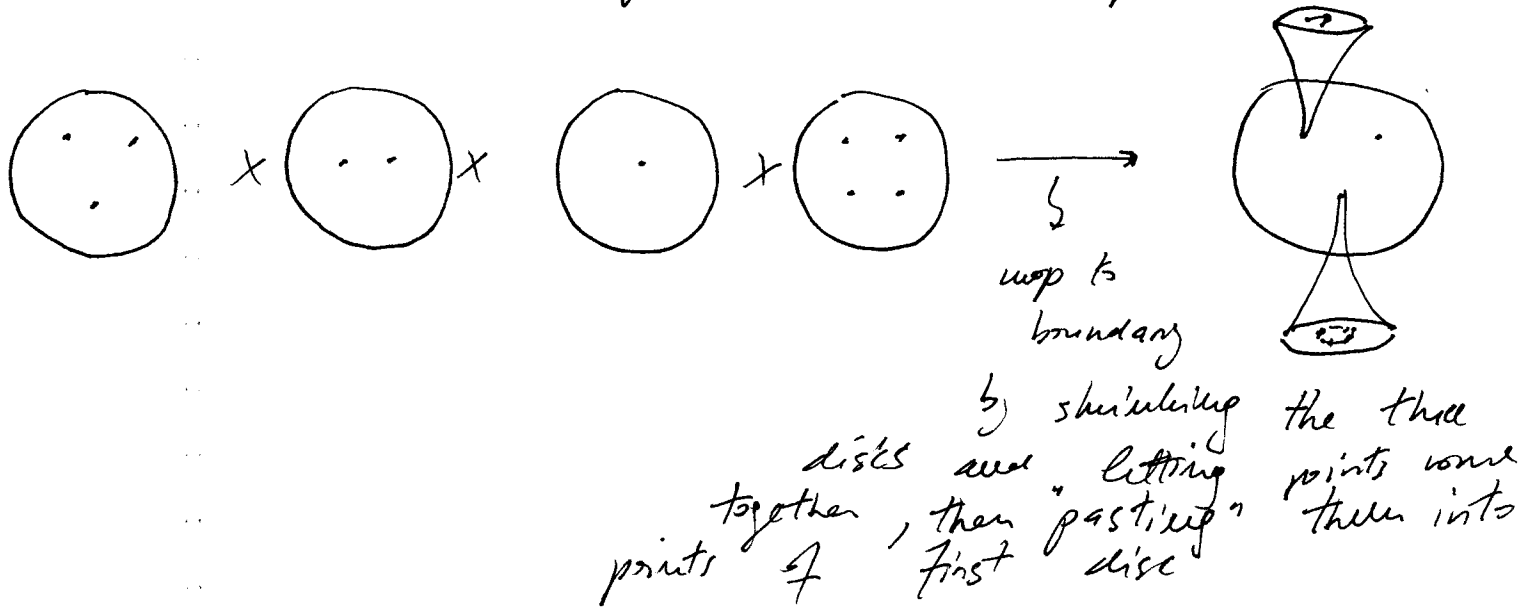 × × × →
map to
boundary
by shrinking the three
discs and letting points come
together, then "pasting" them into
points of first disc